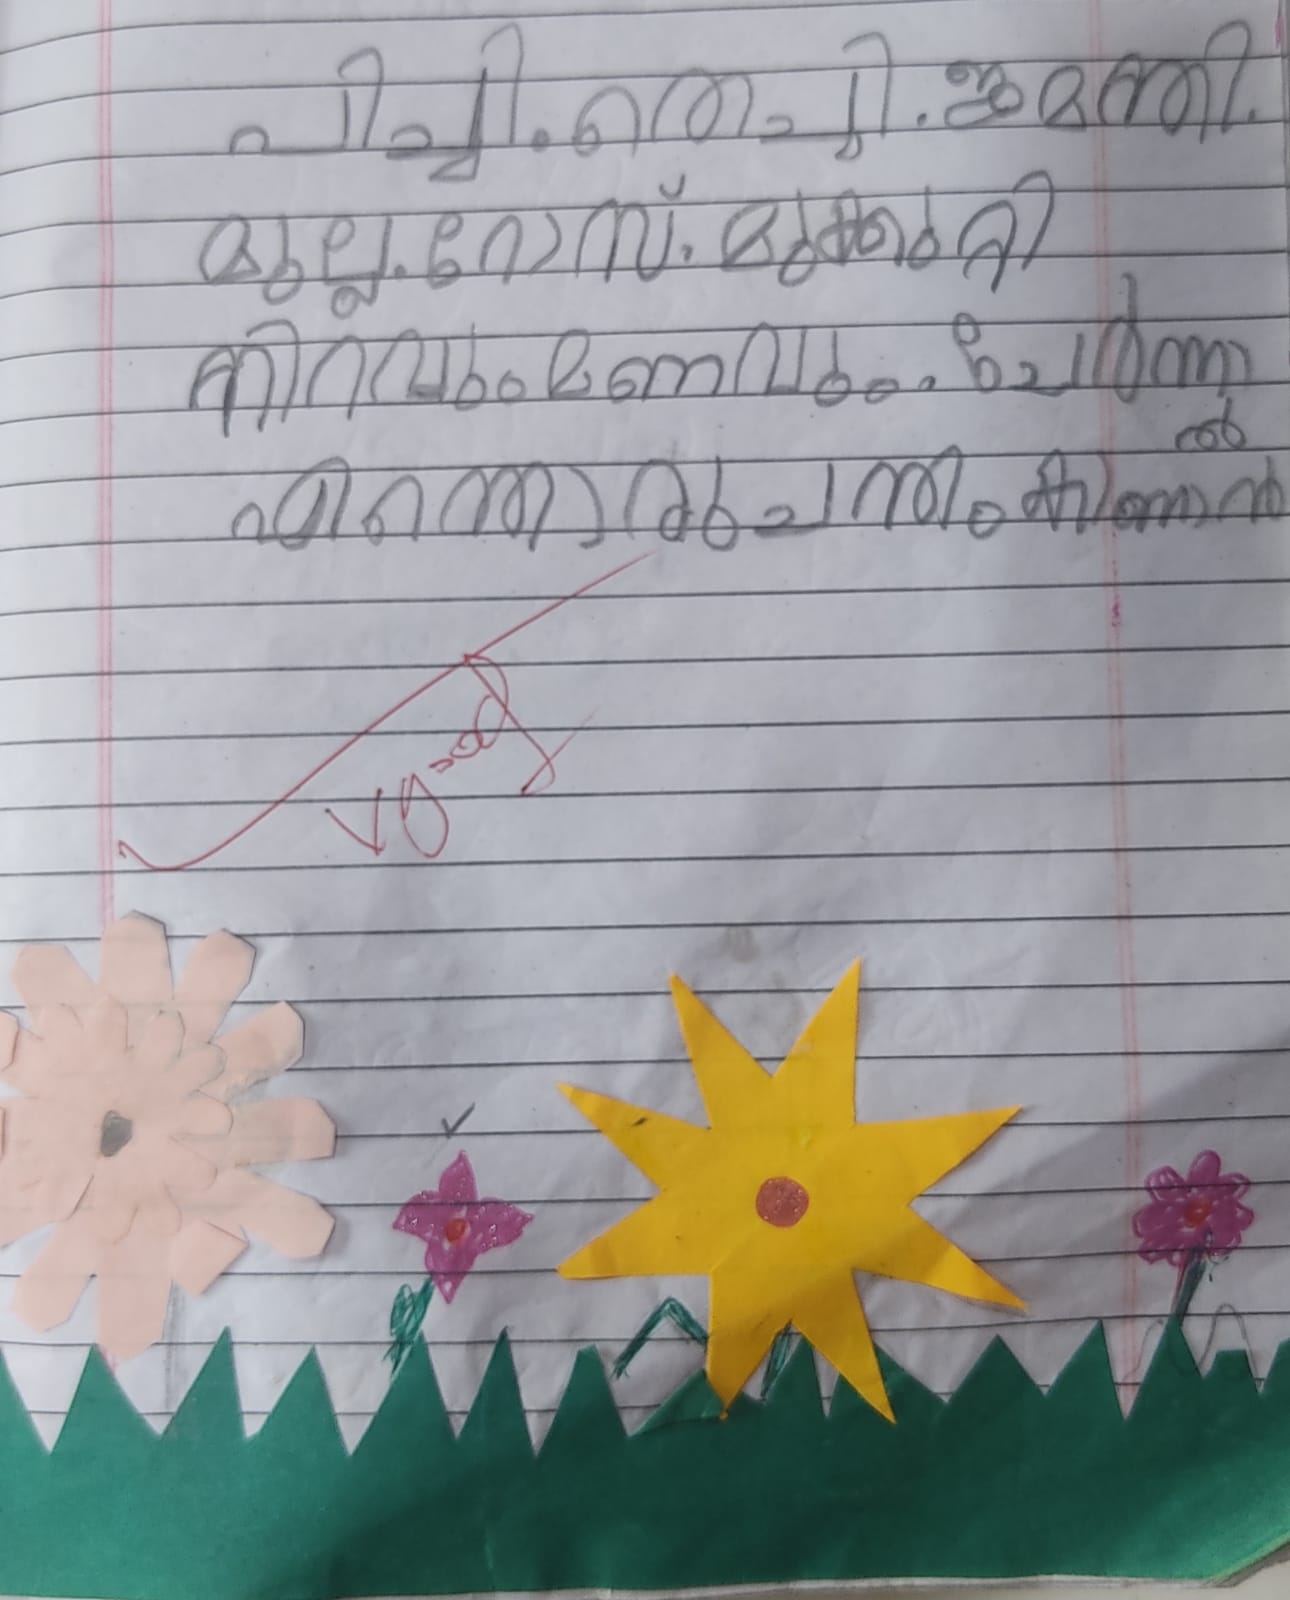 പിച്ചി. തെച്ചി. ജമന്തി.
മുല്ല. റോസ്. മുക്കുറ്റി
നിറവും മണവും. ചേർന്നു
എന്തൊരു ചന്തം കാണാൻ
ൽ
V good